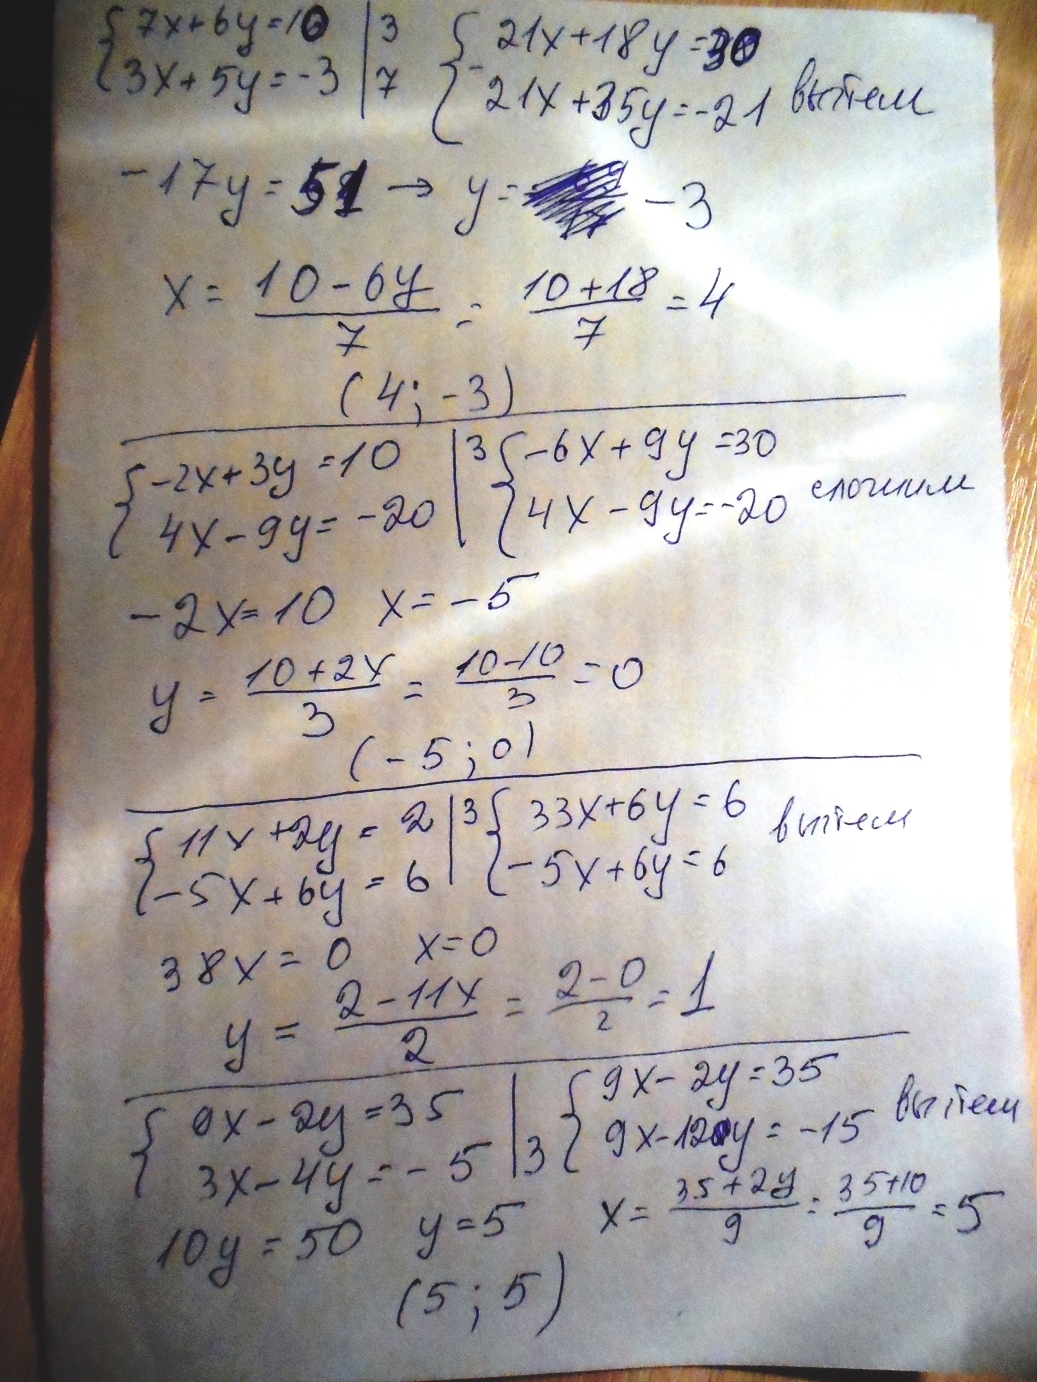 {7x+6y=10 |3 {21x+18y=30
{3x+5y=-3 |7 - {21x+35y=-21 вычтем
-17y=51 → y= -3
x= (10-6y)/7 = (10+18)/7 =4
(4; -3)
{-2x+3y=10 |3 {-6x+9y=30
{4x-9y=-20 | {4x-9y=-20 сложим
-2x=10 x=-5
y= (10+2x)/3 = (10-10)/3 =0
(-5; 0)
{11x+2y=2 |3 {33x+6y=6
{-5x+6y=6 | {-5x+6y=6 вычтем
38x=0 x=0
y= (2-11x)/2 = (2-0)/2 =1
{9x-2y=35 | {9x-2y=35
{3x-4y=-5 |3 {9x-12y=-15 вычтем
10y=50 y=5 x= (35+2y)/9 = (35+10)/9 =5
(5; 5)